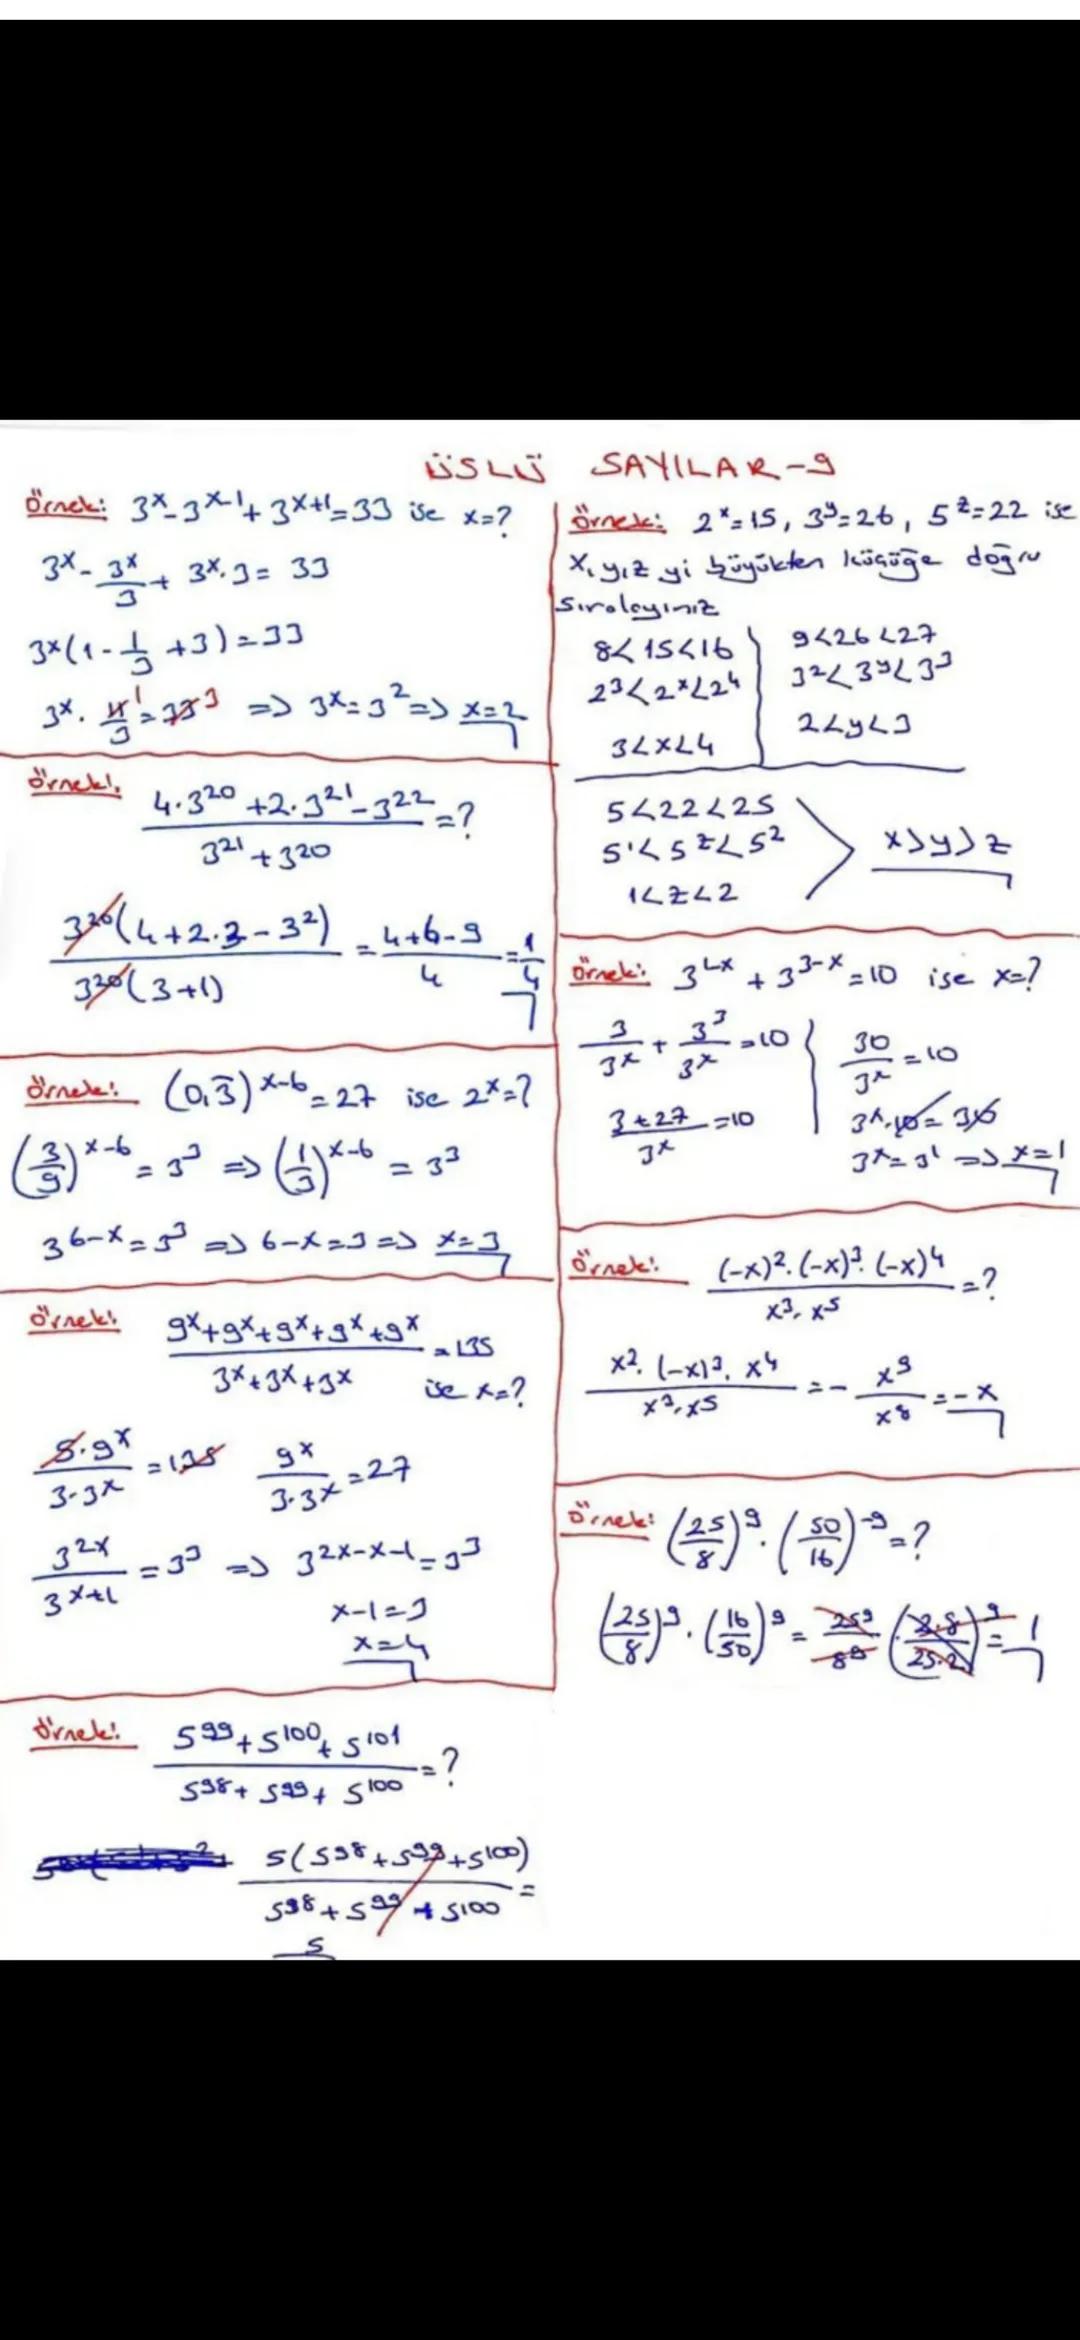 ÜSLÜ SAYILAR-9
Örnek: 3^x - 3^(x-1) + 3^(x+1) = 33 ise x=?
3^x - 3^x/3 + 3^x.3 = 33
3^x(1 - 1/3 + 3) = 33
3^x . 11/3 = 33 3 => 3^x = 3^2 => x=2
Örnek: (4.3^20 + 2.3^21 - 3^22)/(3^21 + 3^20) = ?
3^20(4+2.3-3^2)/3^20(3+1) = (4+6-9)/4 = 1/4
Örnek: (0,3̅)^(x-6) = 27 ise 2^x=?
(3/9)^(x-6) = 3^3 => (1/3)^(x-6) = 3^3
3^(6-x) = 3^3 => 6-x=3 => x=3
Örnek: (9^x+9^x+9^x+9^x+9^x)/(3^x+3^x+3^x) = 135
ise x=?
5.9^x/3.3^x = 135 9^x/3.3^x = 27
3^(2x)/3^(x+1) = 3^3 => 3^(2x-x-1) = 3^3
x-1=3
x=4
Örnek: (5^99+5^100+5^101)/(5^98+5^99+5^100) = ?
5(5^98+5^99+5^100)/(5^98+5^99+5^100) =
5
Örnek: 2^x=15, 3^y=26, 5^z=22 ise
x,y,z yi büyükten küçüğe doğru
sıralayınız
8<15<16
2^3<2^x<2^4
3<x<4
9<26<27
3^2<3^y<3^3
2<y<3
5<22<25
5^1<5^z<5^2
1<z<2
x>y>z
Örnek: 3^(1-x) + 3^(3-x) = 10 ise x=?
3/3^x + 3^3/3^x = 10
(3+27)/3^x = 10
30/3^x = 10
3^x.10 = 30
3^x = 3^1 => x=1
Örnek: (-x)^2.(-x)^3.(-x)^4/(x^3.x^5) = ?
x^2.(-x)^3.x^4/(x^3.x^5) = - x^9/x^8 = -x
Örnek: (25/8)^9 . (50/16)^-9 = ?
(25/8)^9 . (16/50)^9 = 25^9/8^9 . (2.8/25.2)^9 = 1